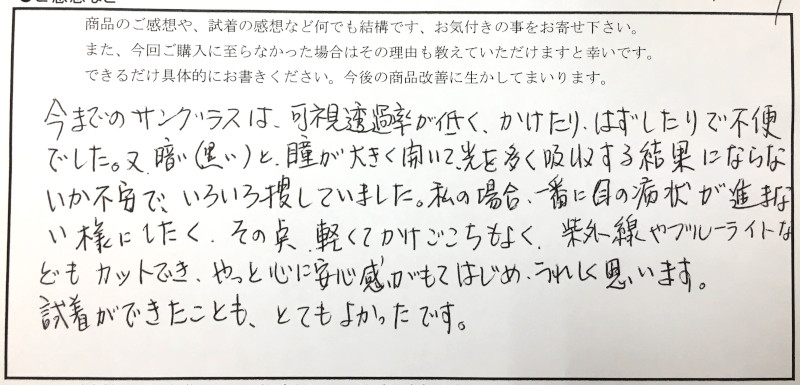 商品のご感想や、試着の感想など何でも結構です、お気付きの事をお寄せ下さい。
また、今回ご購入に至らなかった場合はその理由も教えていただけますと幸いです。
できるだけ具体的にお書きください。今後の商品改善に生かしてまいります。
今までのサングラスは、可視透過率が低く、かけたり、はずしたりで不便
でした。又、暗い(黒い)と、瞳が大きく開いて、光を多く吸収する結果にならな
いか不安で、いろいろ捜していました。私の場合、一番に目の病状が進まな
い様にしたく、その点、軽くてかけごこちもよく、紫外線やブルーライトな
どもカットでき、やっと心に安心感がもてはじめ、うれしく思います。
試着ができたことも、とてもよかったです。